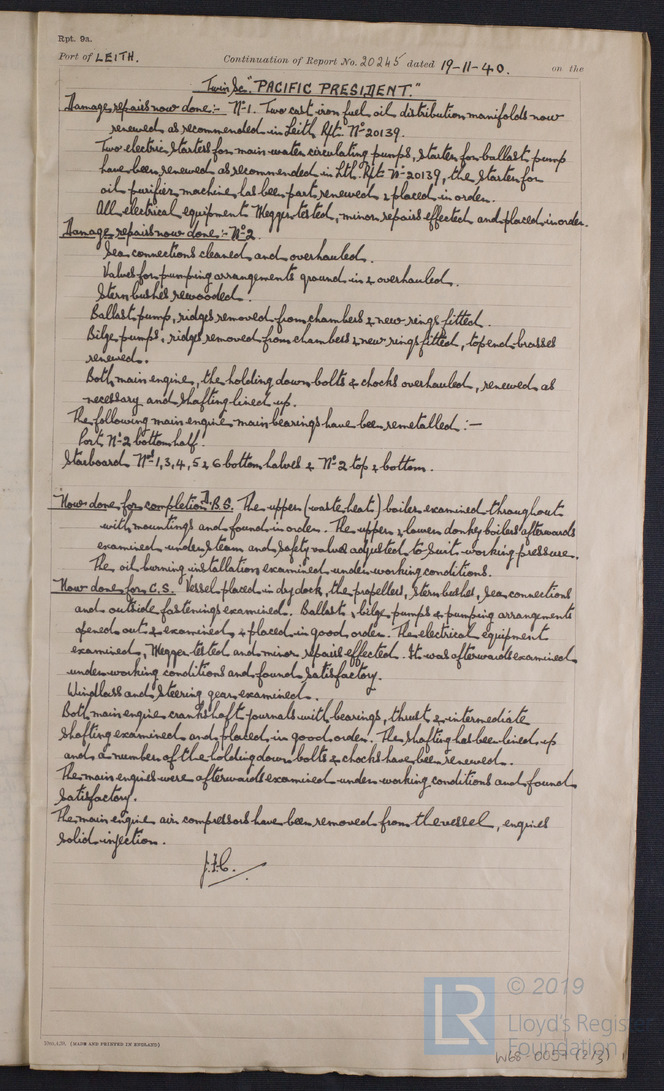 Rpt. 9a.
Port of LEITH. Continuation of Report No. 20245 dated 19-11-40. on the
Twin Sc. "PACIFIC PRESIDENT."
Damage repairs now done:- Nº1. Two cast iron fuel oil distribution manifolds now
renewed as recommended in Leith Rpt. Nº 20139.
Two electric starters for main water circulating pumps, starter for ballast pump
have been renewed as recommended in Lth. Rpt. Nº 20139, the starter for
oil purifier machine has been part renewed & placed in order.
All electrical equipment Megger tested, minor repairs effected and placed in order.
Damage repairs now done:- Nº2.
Sea connections cleaned and overhauled.
Valves for pumping arrangements ground in & overhauled.
Stern bushes rewooded.
Ballast pump, ridges removed from chambers & new rings fitted.
Bilge pumps, ridges removed from chambers & new rings fitted, top end brasses
renewed.
Both main engines, the holding down bolts & chocks overhauled, renewed as
necessary and shafting lined up.
The following main engine main bearings have been remetalled:-
Port Nº 2 bottom half.
Starboard Nºs 1, 3, 4, 5 & 6 bottom halves & Nº 2 top & bottom.
Now done for completion D.B.S. The upper (waste heat) boiler examined throughout
with mountings and found in order. The upper & lower donkey boilers afterwards
examined under steam and safety valves adjusted to suit working pressure.
The oil burning installation examined under working conditions.
Now done for C.S. Vessel placed in dry dock, the propellers, stern bushes, sea connections
and outside fastenings examined. Ballast, bilge pumps & pumping arrangements
opened out & examined & placed in good order. The electrical equipment
examined, Megger tested and minor repairs effected. It was afterwards examined
under working conditions and found satisfactory.
Windlass and steering gear examined.
Both main engine crankshaft journals with bearings, thrust & intermediate
shafting examined and placed in good order. The shafting has been lined up
and a number of the holding down bolts & chocks have been renewed.
The main engines were afterwards examined under working conditions and found
satisfactory.
The main engine air compressors have been removed from the vessel, engines
solid injection.
J.F.C.
(MADE AND PRINTED IN ENGLAND)
LR
© 2019
Lloyd's Register
Foundation
W68-0057 (2/3)